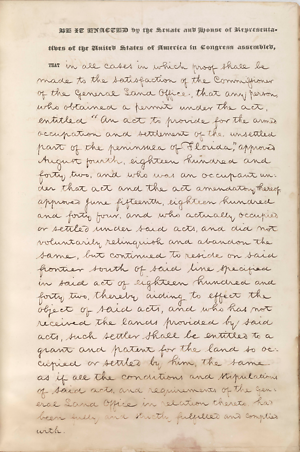 BE IT ENACTED by the Senate and House of Representa-
tives of the United States of America in Congress assembled,
THAT in all cases in which proof shall be
made to the satisfaction of the Commissioner
of the General Land Office, that any person
who obtained a permit under the act,
entitled "An act to provide for the armed
occupation and settlement of the unsettled
part of the peninsula of Florida," approved
August fourth, eighteen hundred and
forty two, and who was an occupant un-
der that act and the act amendatory thereof
approved June fifteenth, eighteen hundred
and forty four, and who actually occupied
or settled under said acts, and did not
voluntarily relinquish and abandon the
same, but continued to reside on said
frontier south of said line specified
in said act of eighteen hundred and
forty two, thereby aiding to effect the
object of said acts, and who has not
received the lands provided by said
acts, such settler shall be entitled to a
grant and patent for the land so oc-
cupied or settled by him, the same
as if all the conditions and stipulations
of said acts, and requirements of the Gen-
eral Land Office in relation thereto had
been fully, and strictly fulfilled and complied
with.